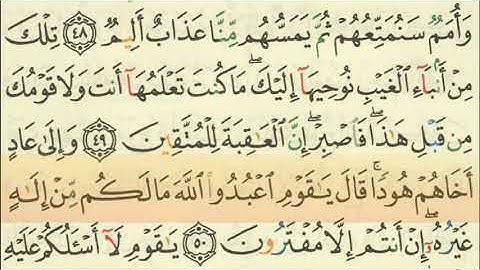 وَأُمَمٌ سَنُمَتِّعُهُمْ ثُمَّ يَمَسُّهُم مِّنَّا عَذَابٌ أَلِيمٌ ۝٤٨ تِلْكَ
مِنْ أَنۢبَآءِ ٱلْغَيْبِ نُوحِيهَآ إِلَيْكَۖ مَا كُنتَ تَعْلَمُهَآ أَنتَ وَلَا قَوْمُكَ
مِن قَبْلِ هَٰذَاۖ فَٱصْبِرْۖ إِنَّ ٱلْعَٰقِبَةَ لِلْمُتَّقِينَ ۝٤٩ وَإِلَىٰ عَادٍ
أَخَاهُمْ هُودًاۚ قَالَ يَٰقَوْمِ ٱعْبُدُوا۟ ٱللَّهَ مَا لَكُم مِّنْ إِلَٰهٍ
غَيْرُهُۥٓۖ إِنْ أَنتُمْ إِلَّا مُفْتَرُونَ ۝٥٠ يَٰقَوْمِ لَآ أَسْـَٔلُكُمْ عَلَيْهِ